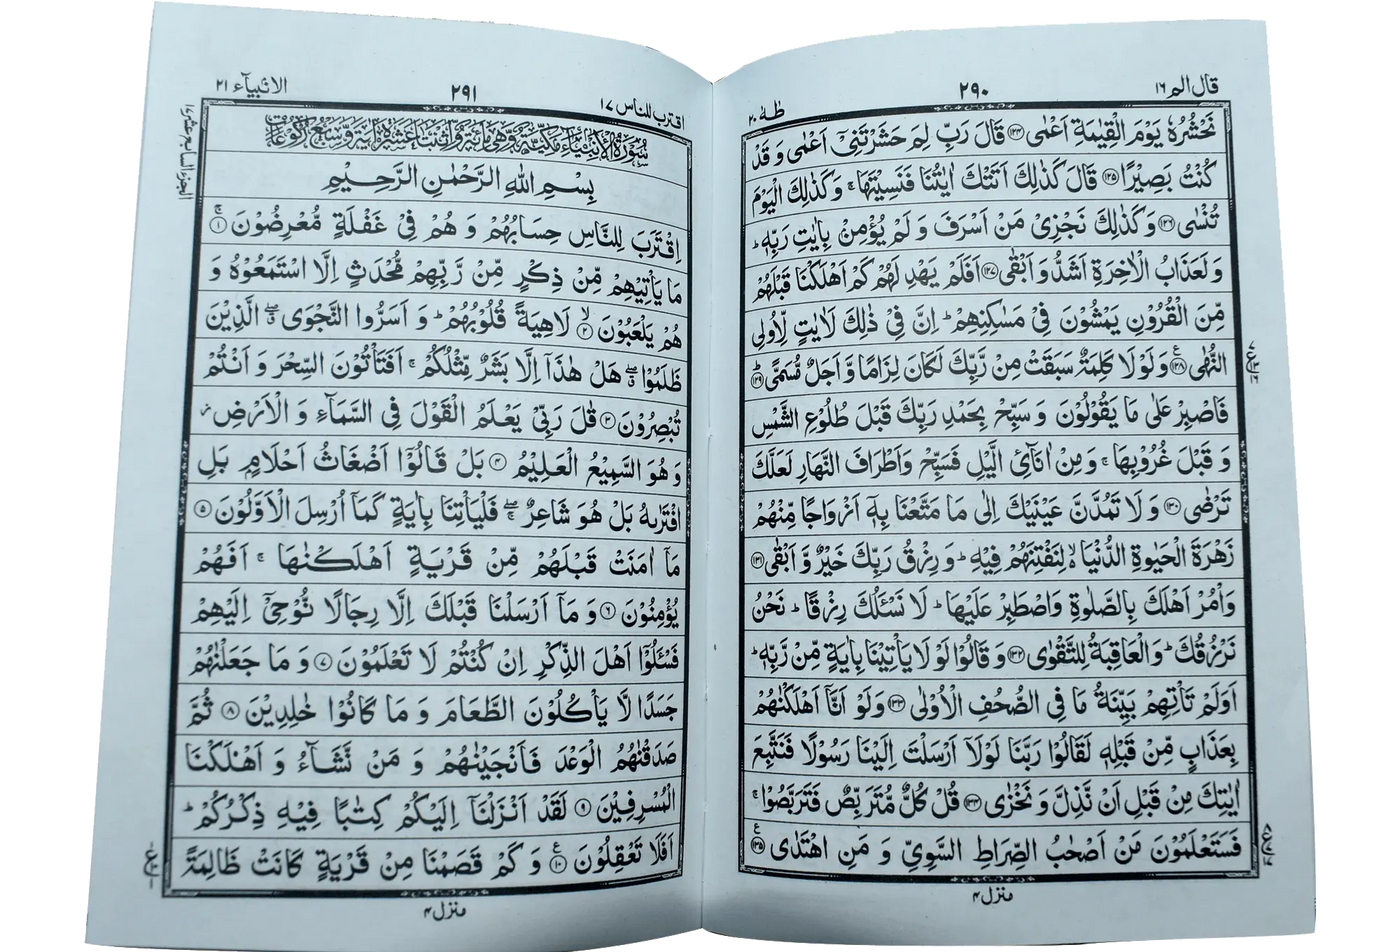 قال الم ١٦
٢٩٠
طٰهٰ ٢٠
نَحْشُرُهٗ يَوْمَ الْقِيٰمَةِ اَعْمٰى ﴿١٢٤﴾ قَالَ رَبِّ لِمَ حَشَرْتَنِىْٓ اَعْمٰى وَ قَدْ
كُنْتُ بَصِيْرًا ﴿١٢٥﴾ قَالَ كَذٰلِكَ اَتَتْكَ اٰيٰتُنَا فَنَسِيْتَهَا ۚ وَ كَذٰلِكَ الْيَوْمَ
تُنْسٰى ﴿١٢٦﴾ وَ كَذٰلِكَ نَجْزِىْ مَنْ اَسْرَفَ وَ لَمْ يُؤْمِنْۢ بِاٰيٰتِ رَبِّهٖ ؕ
وَ لَعَذَابُ الْاٰخِرَةِ اَشَدُّ وَ اَبْقٰى ﴿١٢٧﴾ اَفَلَمْ يَهْدِ لَهُمْ كَمْ اَهْلَكْنَا قَبْلَهُمْ
مِّنَ الْقُرُوْنِ يَمْشُوْنَ فِىْ مَسٰكِنِهِمْ ؕ اِنَّ فِىْ ذٰلِكَ لَاٰيٰتٍ لِّاُولِى
النُّهٰى ﴿١٢٨﴾ وَ لَوْ لَا كَلِمَةٌ سَبَقَتْ مِنْ رَّبِّكَ لَكَانَ لِزَامًا وَّ اَجَلٌ مُّسَمًّى ﴿١٢٩﴾
فَاصْبِرْ عَلٰى مَا يَقُوْلُوْنَ وَ سَبِّحْ بِحَمْدِ رَبِّكَ قَبْلَ طُلُوْعِ الشَّمْسِ
وَ قَبْلَ غُرُوْبِهَا ۚ وَ مِنْ اٰنَآئِ الَّيْلِ فَسَبِّحْ وَ اَطْرَافَ النَّهَارِ لَعَلَّكَ
تَرْضٰى ﴿١٣٠﴾ وَ لَا تَمُدَّنَّ عَيْنَيْكَ اِلٰى مَا مَتَّعْنَا بِهٖٓ اَزْوَاجًا مِّنْهُمْ
زَهْرَةَ الْحَيٰوةِ الدُّنْيَا ۙ لِنَفْتِنَهُمْ فِيْهِ ؕ وَ رِزْقُ رَبِّكَ خَيْرٌ وَّ اَبْقٰى ﴿١٣١﴾
وَ اْمُرْ اَهْلَكَ بِالصَّلٰوةِ وَ اصْطَبِرْ عَلَيْهَا ؕ لَا نَسْـَٔلُكَ رِزْقًا ؕ نَحْنُ
نَرْزُقُكَ ؕ وَ الْعَاقِبَةُ لِلتَّقْوٰى ﴿١٣٢﴾ وَ قَالُوْا لَوْ لَا يَاْتِيْنَا بِاٰيَةٍ مِّنْ رَّبِّهٖ ؕ
اَوَ لَمْ تَاْتِهِمْ بَيِّنَةُ مَا فِى الصُّحُفِ الْاُوْلٰى ﴿١٣٣﴾ وَ لَوْ اَنَّآ اَهْلَكْنٰهُمْ
بِعَذَابٍ مِّنْ قَبْلِهٖ لَقَالُوْا رَبَّنَا لَوْ لَآ اَرْسَلْتَ اِلَيْنَا رَسُوْلًا فَنَتَّبِعَ
اٰيٰتِكَ مِنْ قَبْلِ اَنْ نَّذِلَّ وَ نَخْزٰى ﴿١٣٤﴾ قُلْ كُلٌّ مُّتَرَبِّصٌ فَتَرَبَّصُوْا ۚ
فَسَتَعْلَمُوْنَ مَنْ اَصْحٰبُ الصِّرَاطِ السَّوِىِّ وَ مَنِ اهْتَدٰى ﴿١٣٥﴾
منزل ٤
اقترب للناس ١٧
٢٩١
الانبيآء ٢١
سُوْرَةُ الْاَنْبِيَآءِ مَكِّيَّةٌ وَّهِىَ مِائَةٌ وَّاثْنَتَا عَشْرَةَ اٰيَةً وَّسَبْعُ رُكُوْعَاتٍ
بِسْمِ اللهِ الرَّحْمٰنِ الرَّحِيْمِ
اِقْتَرَبَ لِلنَّاسِ حِسَابُهُمْ وَ هُمْ فِىْ غَفْلَةٍ مُّعْرِضُوْنَ ﴿١﴾ ۚ
مَا يَاْتِيْهِمْ مِّنْ ذِكْرٍ مِّنْ رَّبِّهِمْ مُّحْدَثٍ اِلَّا اسْتَمَعُوْهُ وَ
هُمْ يَلْعَبُوْنَ ﴿٢﴾ ۙ لَاهِيَةً قُلُوْبُهُمْ ؕ وَ اَسَرُّوا النَّجْوَى ۖ ق الَّذِيْنَ
ظَلَمُوْا ۖ ق هَلْ هٰذَآ اِلَّا بَشَرٌ مِّثْلُكُمْ ۚ اَفَتَاْتُوْنَ السِّحْرَ وَ اَنْتُمْ
تُبْصِرُوْنَ ﴿٣﴾ قٰلَ رَبِّىْ يَعْلَمُ الْقَوْلَ فِى السَّمَآءِ وَ الْاَرْضِ ز
وَ هُوَ السَّمِيْعُ الْعَلِيْمُ ﴿٤﴾ بَلْ قَالُوْٓا اَضْغَاثُ اَحْلَامٍۭ بَلِ
افْتَرٰىهُ بَلْ هُوَ شَاعِرٌ ۖ ۚ فَلْيَاْتِنَا بِاٰيَةٍ كَمَآ اُرْسِلَ الْاَوَّلُوْنَ ﴿٥﴾
مَآ اٰمَنَتْ قَبْلَهُمْ مِّنْ قَرْيَةٍ اَهْلَكْنٰهَا ۚ اَفَهُمْ
يُؤْمِنُوْنَ ﴿٦﴾ وَ مَآ اَرْسَلْنَا قَبْلَكَ اِلَّا رِجَالًا نُّوْحِىْٓ اِلَيْهِمْ
فَسْـَٔلُوْٓا اَهْلَ الذِّكْرِ اِنْ كُنْتُمْ لَا تَعْلَمُوْنَ ﴿٧﴾ وَ مَا جَعَلْنٰهُمْ
جَسَدًا لَّا يَاْكُلُوْنَ الطَّعَامَ وَ مَا كَانُوْا خٰلِدِيْنَ ﴿٨﴾ ثُمَّ
صَدَقْنٰهُمُ الْوَعْدَ فَاَنْجَيْنٰهُمْ وَ مَنْ نَّشَآءُ وَ اَهْلَكْنَا
الْمُسْرِفِيْنَ ﴿٩﴾ لَقَدْ اَنْزَلْنَآ اِلَيْكُمْ كِتٰبًا فِيْهِ ذِكْرُكُمْ ؕ
اَفَلَا تَعْقِلُوْنَ ﴿١٠﴾ وَ كَمْ قَصَمْنَا مِنْ قَرْيَةٍ كَانَتْ ظَالِمَةً
منزل ٤
الجزء السابع عشر ١٧